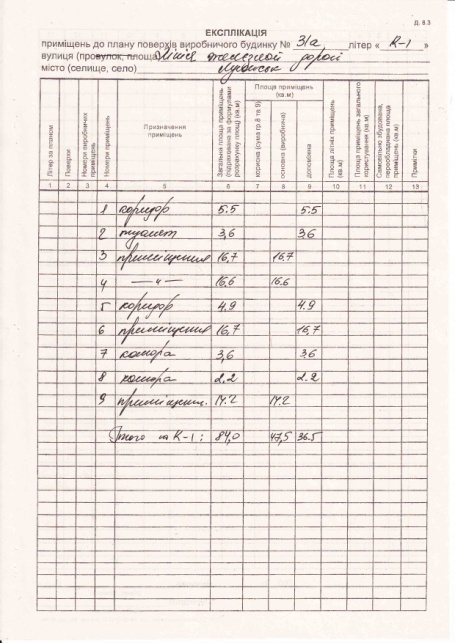 Д. 8.3
ЕКСПЛІКАЦІЯ
приміщень до плану поверхів виробничого будинку № 31а літер « К-1 »
вулиця (провулок, площа) Лінія железной дороги
місто (селище, село)
Літер за планом
Поверхи
Номери виробничих приміщень
Номери приміщень
Призначення приміщень
Загальна площа приміщень (підрахована за формулами розрахунку площ) (кв.м)
Площа приміщень (кв.м)
корисна (сума гр.8 та 9)
основна (виробнича)
допоміжна
Площа літніх приміщень (кв.м)
Площа приміщень загального користування (кв.м)
Самовільно збудована, переобладнана площа приміщень (кв.м)
Примітки
1 2 3 4 5 6 7 8 9 10 11 12 13
1 коридор 5.5 5.5
2 туалет 3,6 3.6
3 приміщення 16,7 16.7
4 —〃— 16.6 16.6
5 коридор 4.9 4.9
6 приміщення 16,7 16,7
7 комора 3,6 3.6
8 комора 2.2 2.2
9 приміщен. 14.2 14.2
Итого на К-1: 84,0 47,5 36.5